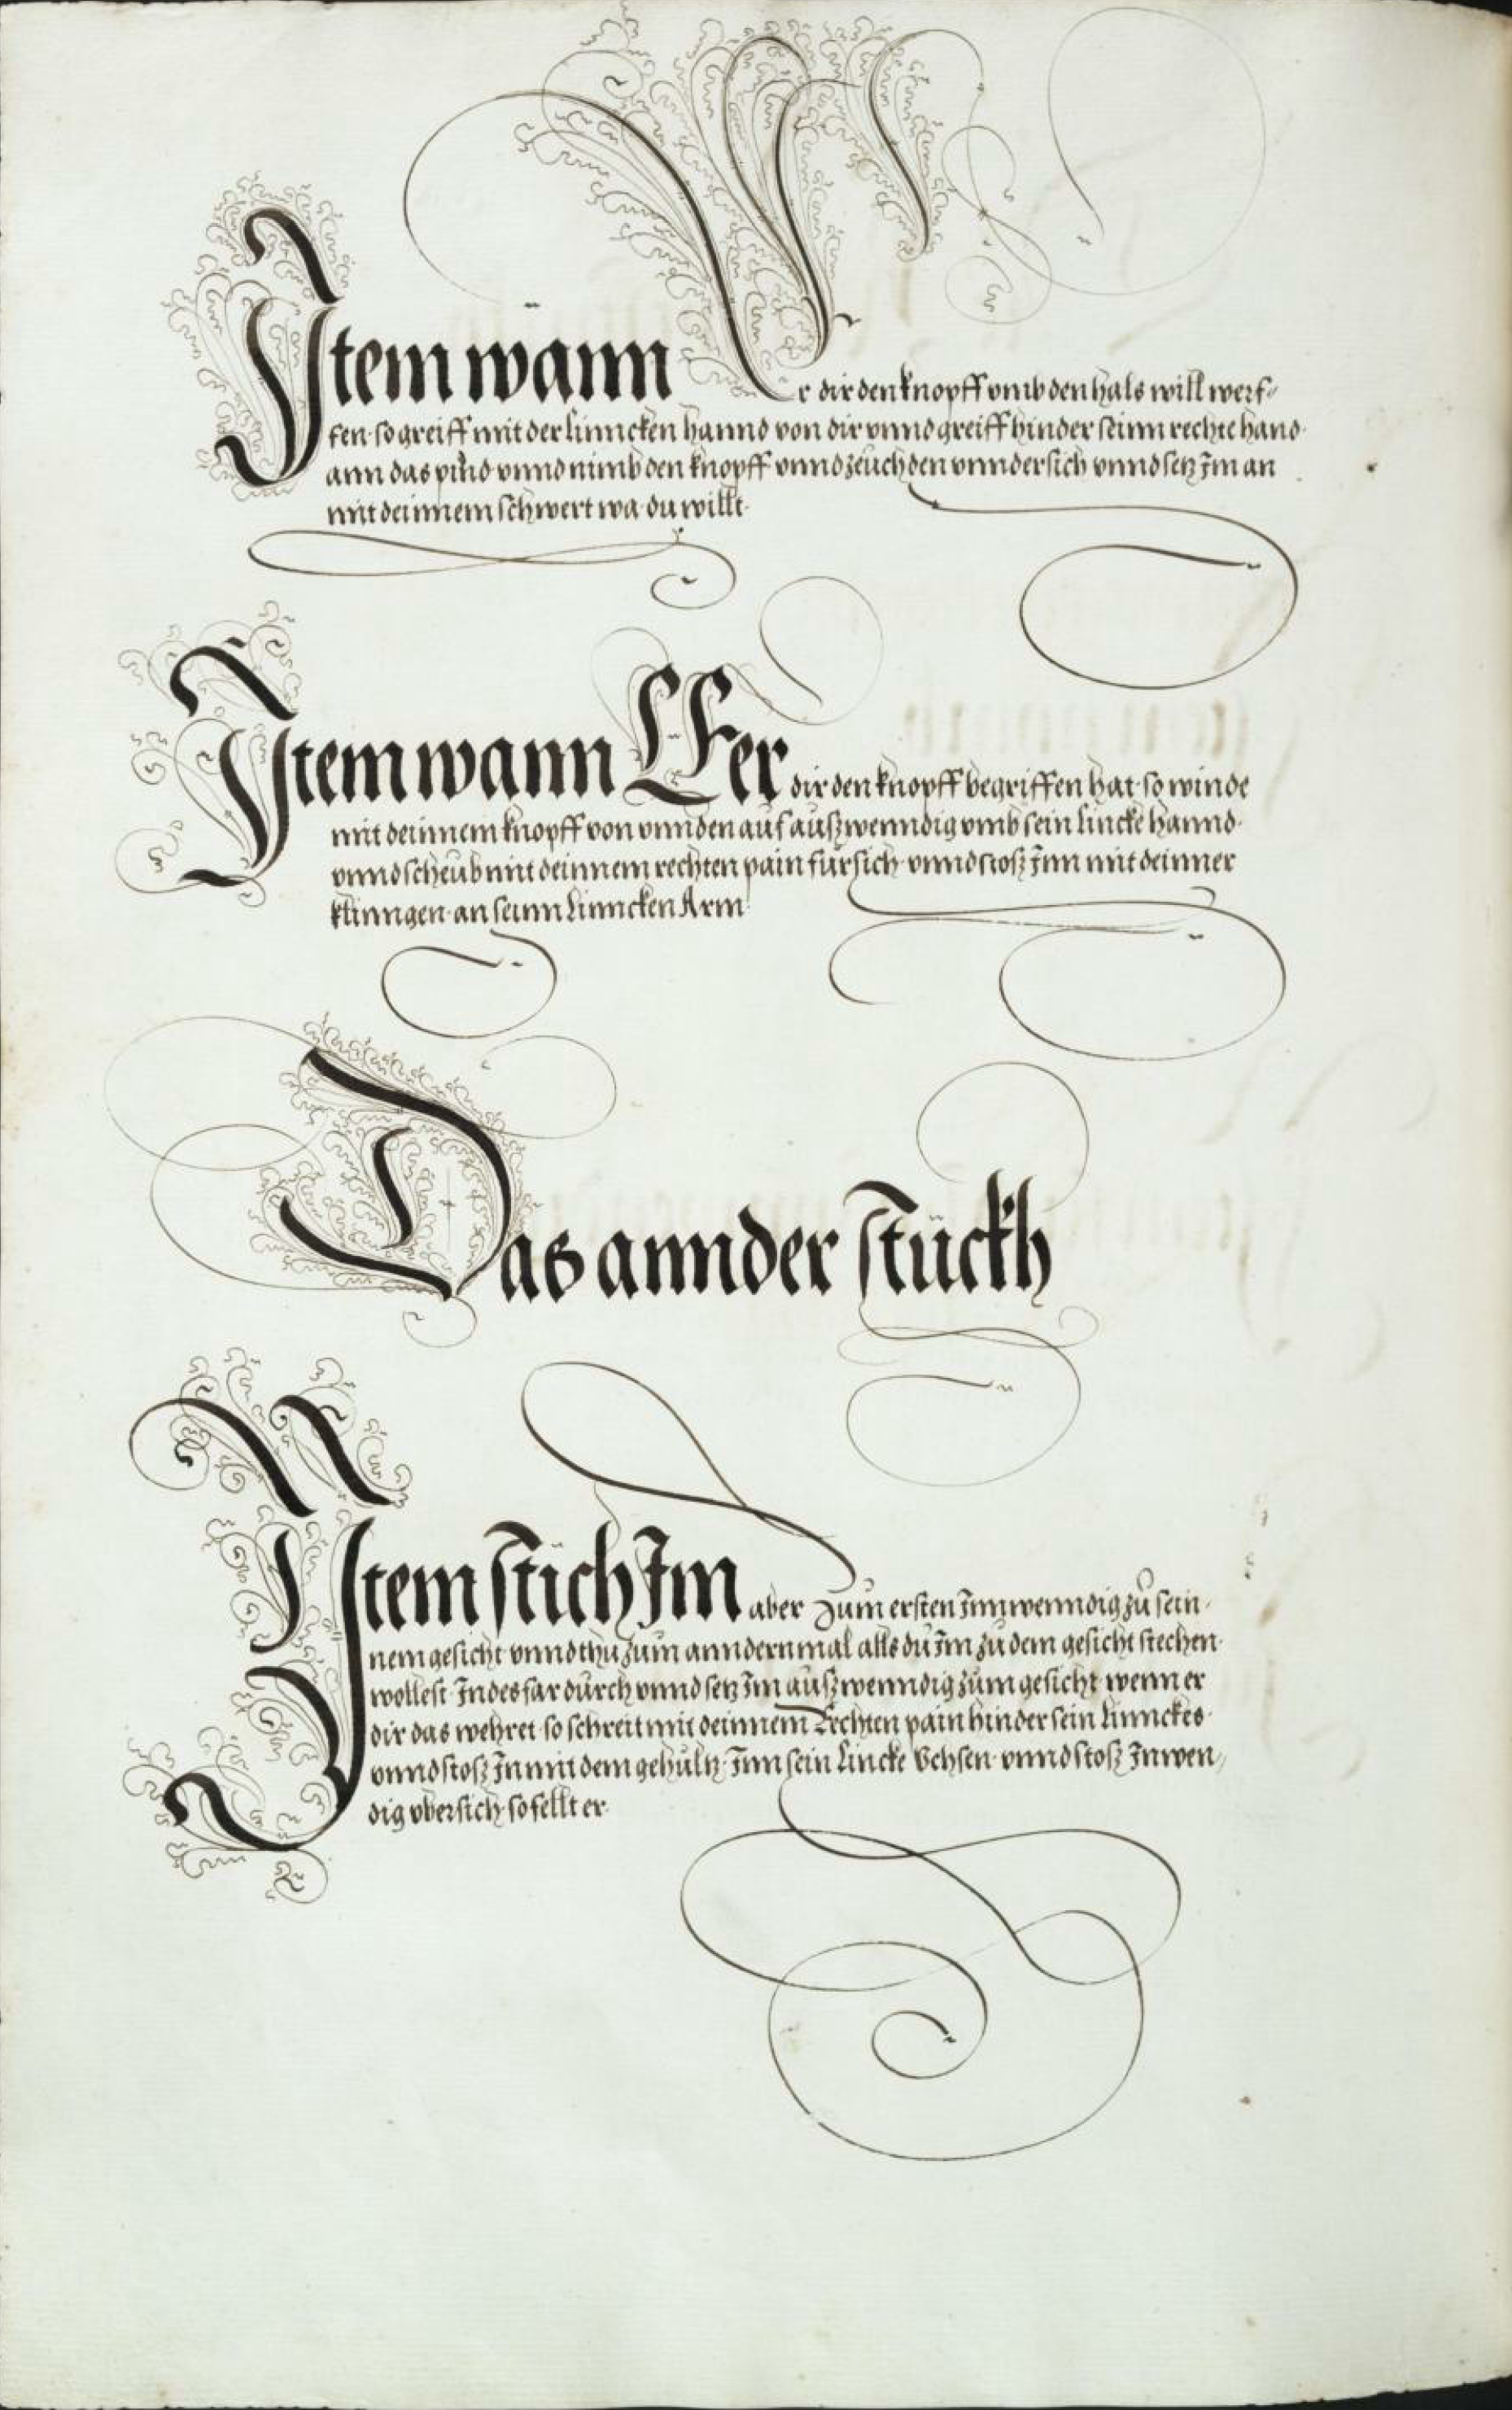 Item wann Er dir den knopff vmb den hals will werf-
fen so greiff mit der linncken hannd von dir vnnd greiff hinder seinn rechte hand
ann das pind vnnd nimb den knopff vnnd zeuch den vnndersich vnnd setz Im an
mit deinnem schwert wa du willt
Item wann Er dir den knopff begriffen hat so winde
mit deinnem knopff von vnnden auf außwenndig vmb sein lincke hannd
vnnd scheub mit deinnem rechten pain fur sich vnnd stoß Inn mit deinner
klinngen an seinn linncken Arm
Das annder stückh
Item stich Im aber zum ersten Innwenndig zu sein
nem gesicht vnnd thu zum anndern mal alls du Im zu dem gesicht stechen
wollest Indes far durch vnnd setz Im außwenndig zum gesicht wenn er
dir das wehret so schreit mit deinnem Rechten pain hinder sein linnckes
vnnd stoß In mit dem gehültz Inn sein lincke Vchsen vnnd stoß Inwen
dig vbersich so fellt er